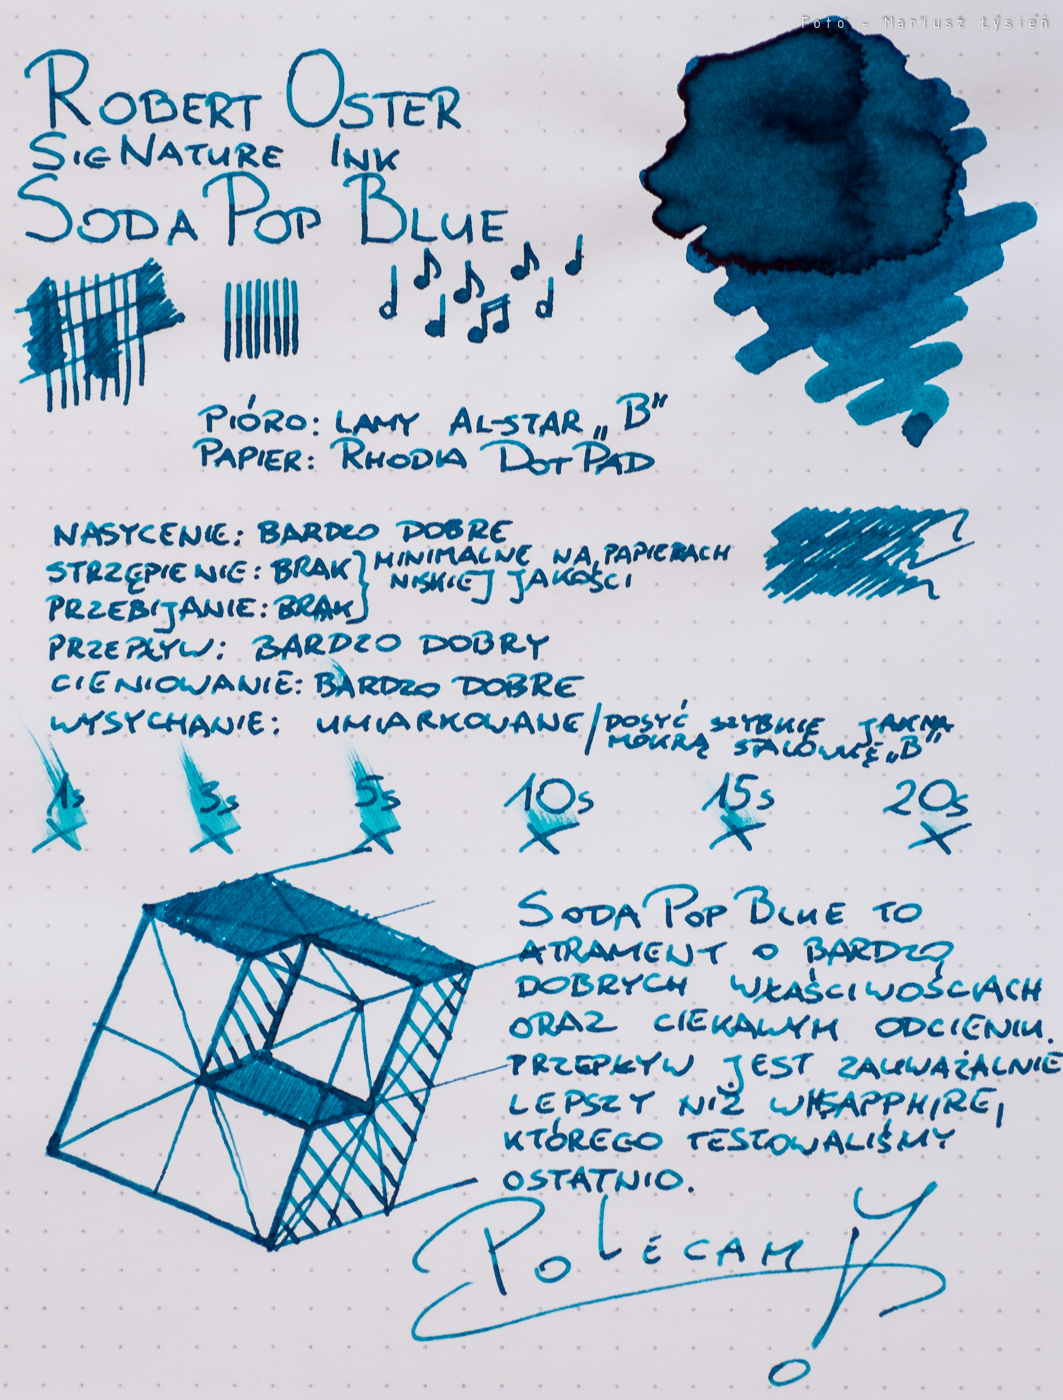 Foto - Mariusz Łysień
Robert Oster
Signature Ink
Soda Pop Blue
PIÓRO: LAMY AL-STAR „B”
PAPIER: RHODIA DOTPAD
NASYCENIE: BARDZO DOBRE
STRZĘPIENIE: BRAK } MINIMALNE NA PAPIERACH
NISKIEJ JAKOŚCI
PRZEBIJANIE: BRAK
PRZEPŁYW: BARDZO DOBRY
CIENIOWANIE: BARDZO DOBRE
WYSYCHANIE: UMIARKOWANE / DOSYĆ SZYBKIE JAK NA
MOKRĄ STALÓWKĘ „B”
1s 3s 5s 10s 15s 20s
SODA POP BLUE TO
ATRAMENT O BARDZO
DOBRYCH WŁAŚCIWOŚCIACH
ORAZ CIEKAWYM ODCIENIU.
PRZEPŁYW JEST ZAUWAŻALNIE
LEPSZY NIŻ W SAPPHIRE,
KTÓREGO TESTOWALIŚMY
OSTATNIO.
POLECAM!